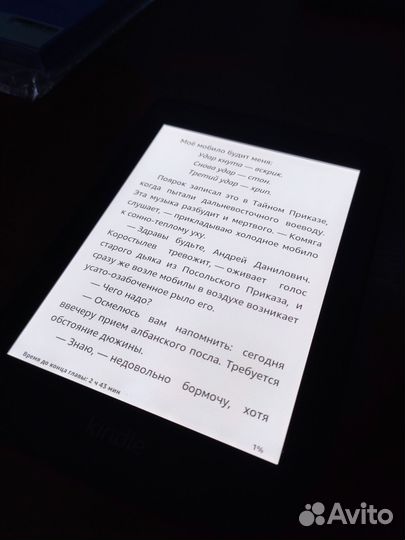 Моё мобило будит меня:
Удар кнута — вскрик.
Снова удар — стон.
Третий удар — хрип.
Поярок записал это в Тайном Приказе,
когда пытали дальневосточного воеводу.
Эта музыка разбудит и мертвого. — Комяга
слушает, — прикладываю холодное мобило
к сонно-теплому уху.
— Здравы будьте, Андрей Данилович.
Коростылев тревожит, — оживает голос
старого дьяка из Посольского Приказа, и
сразу же возле мобилы в воздухе возникает
усато-озабоченное рыло его.
— Чего надо?
— Осмелюсь вам напомнить: сегодня
ввечеру прием албанского посла. Требуется
обстояние дюжины.
— Знаю, — недовольно бормочу, хотя
Время до конца главы: 2 ч 43 мин
1%
kindle
Avito